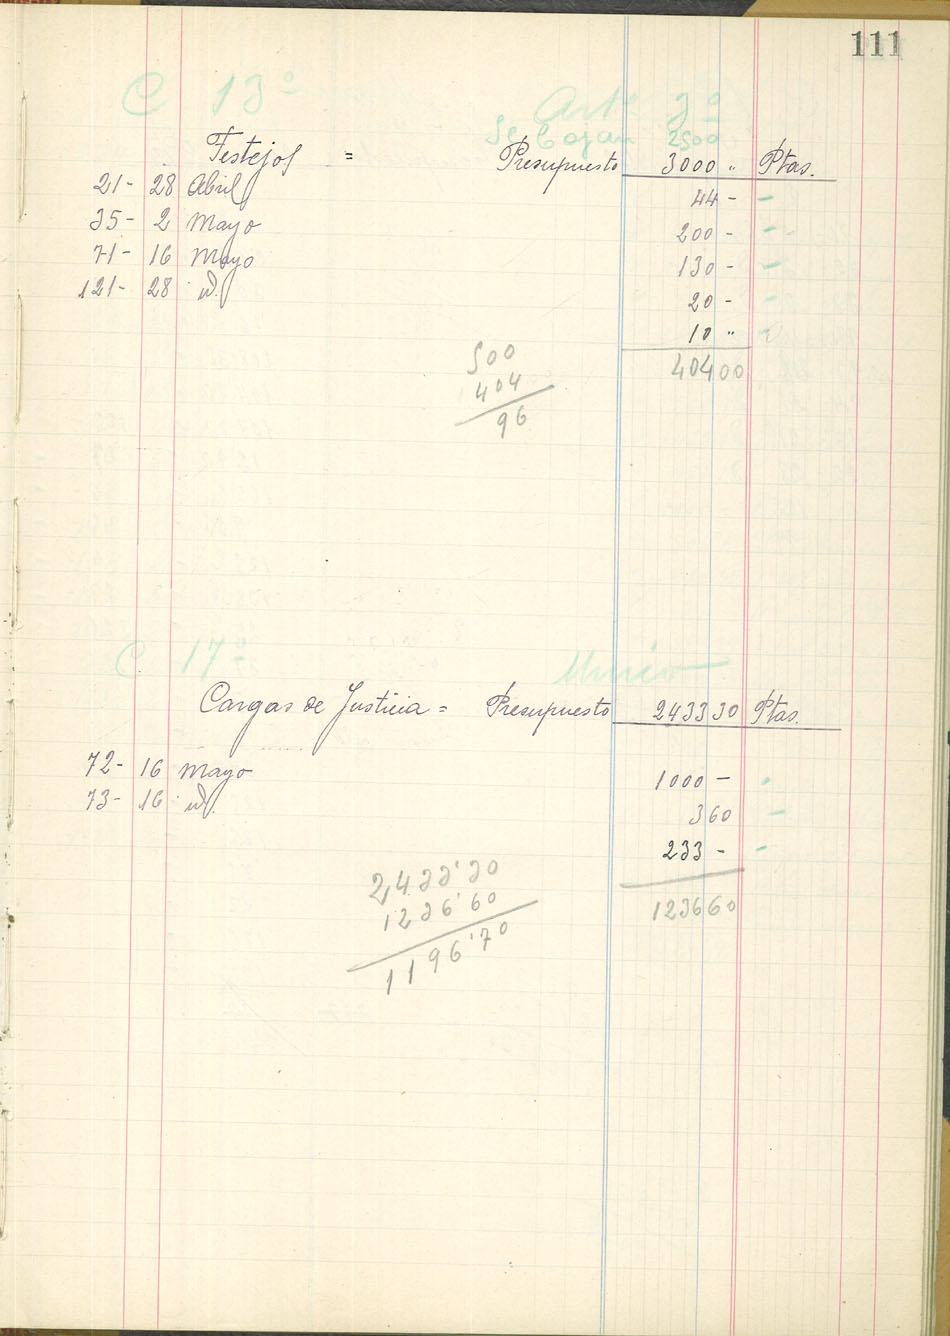 111
C 13º Artº 3º
2500
Festejos = Presupuesto 3000 " Ptas.
21- 28 Abril 44 -
35- 2 Mayo 200 -
71- 16 Mayo 130 -
121- 28 id. 20 -
10 "
404 00
500
404
96
C 17º Unico
Cargas de Justicia = Presupuesto 2433 30 Ptas.
72- 16 Mayo 1000 -
73- 16 id. 3 60
233 -
1236 60
2433'30
1236'60
1196'70